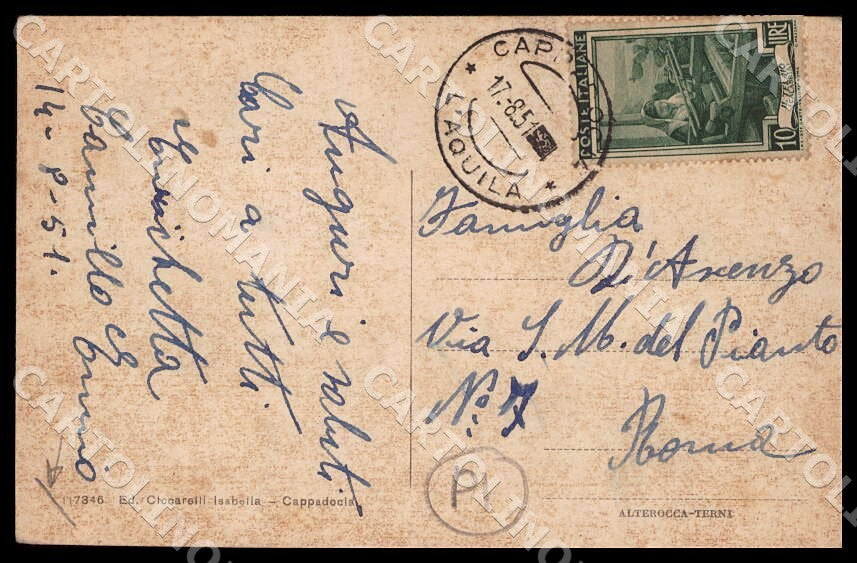 Auguri e saluti
Cari a tutti
Enrichetta
Camillo
14-8-51.
117346 Ed. Ciccarelli Isabella – Cappadocia
POSTE ITALIANE
LIRE
10
L'AQUILA
17.8.51
Famiglia
D'Arenzo
Via S. M. del Pianto
No. 7
Roma
PL
ALTEROCCA-TERNI
CARTOLINOMANIA